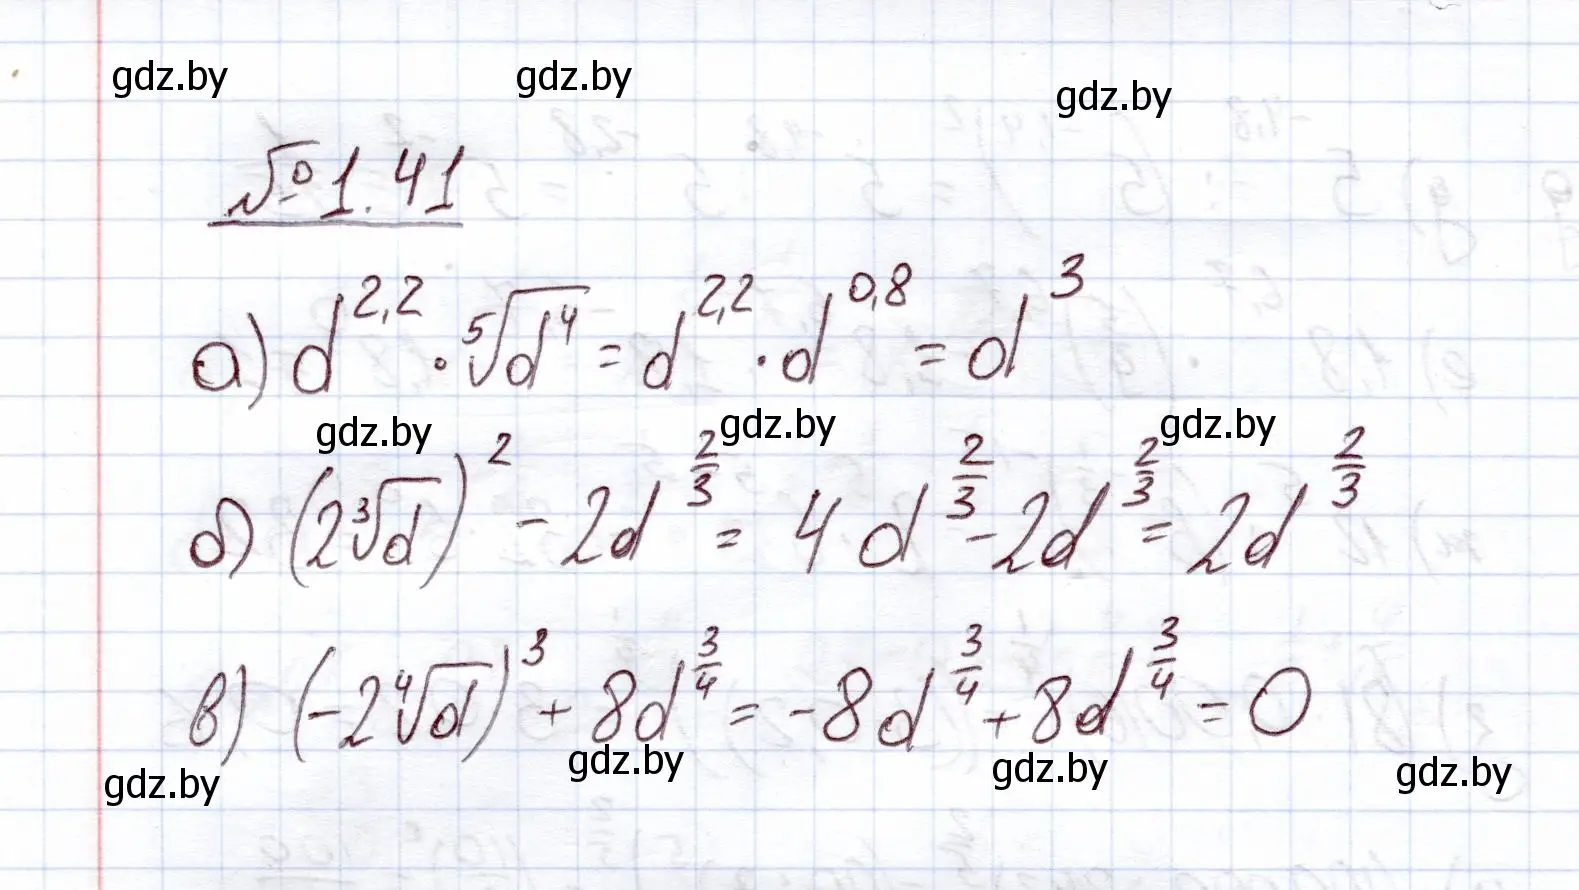 gdz.by gdz.by gdz.by
№ 1.41
а) d^{2,2} · ⁵√(d⁴) = d^{2,2} · d^{0,8} = d³
gdz.by gdz.by gdz.by
б) (2∛d)² - 2d^{2/3} = 4d^{2/3} - 2d^{2/3} = 2d^{2/3}
в) (-2∜d)³ + 8d^{3/4} = -8d^{3/4} + 8d^{3/4} = 0
gdz.by gdz.by gdz.by gdz.by